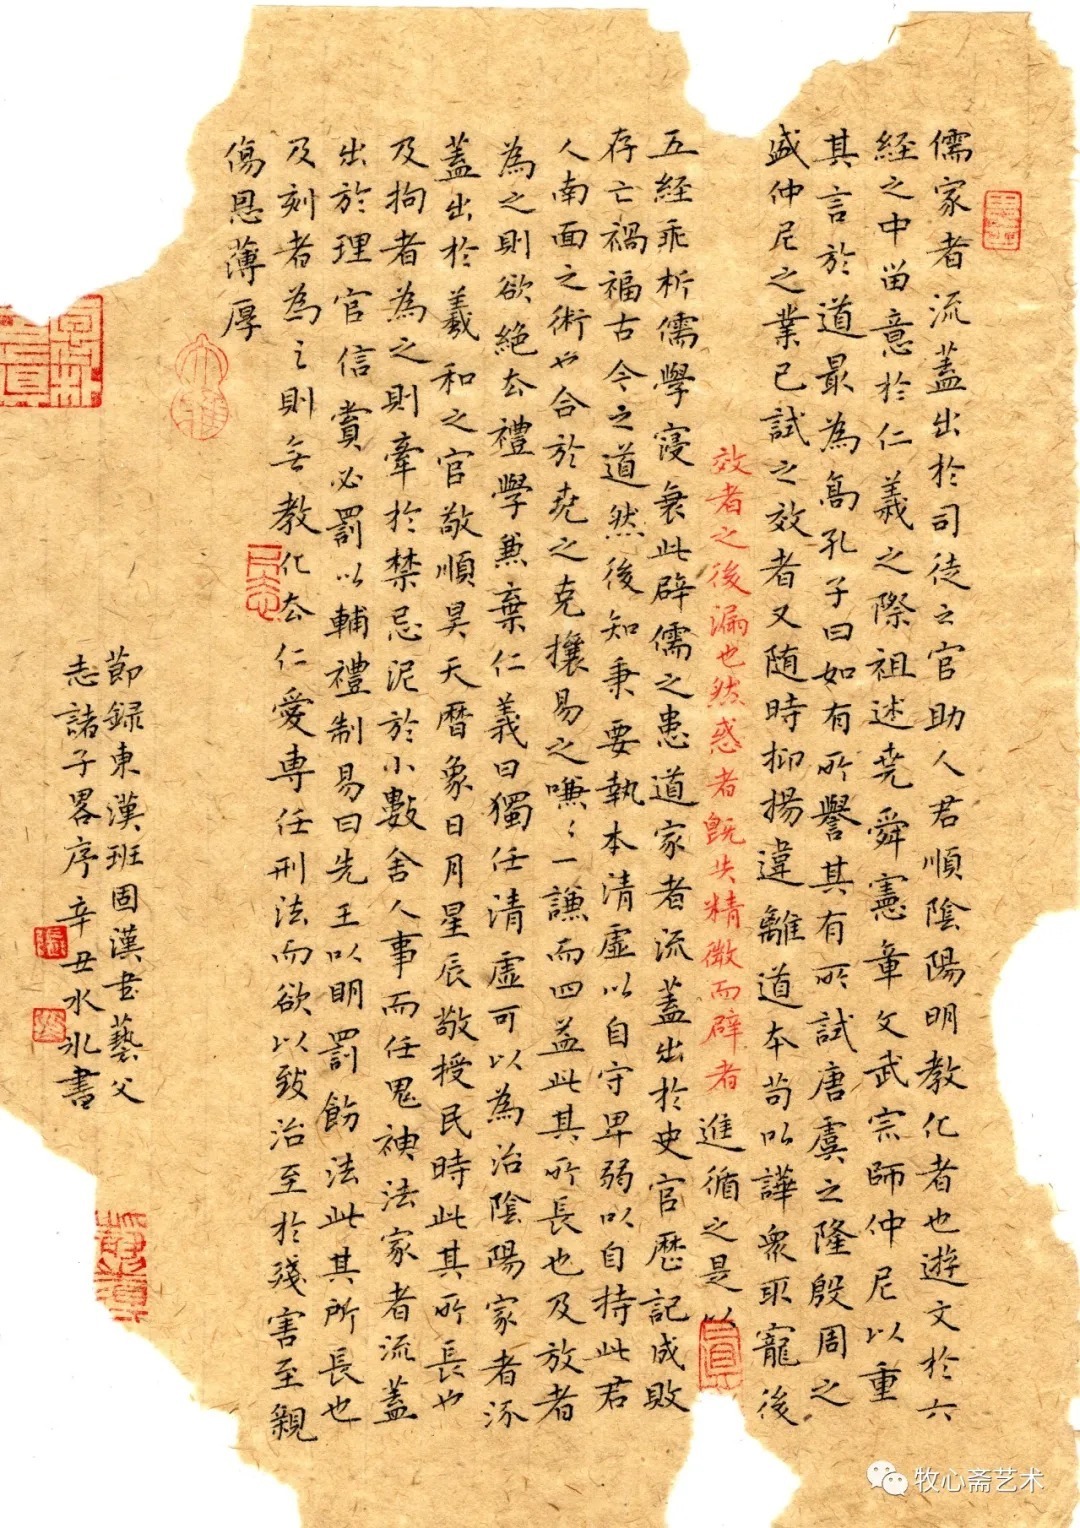 儒家者流蓋出於司徒之官助人君順陰陽明教化者也遊文於六
經之中留意於仁義之際祖述堯舜憲章文武宗師仲尼以重
其言於道最為高孔子曰如有所譽其有所試唐虞之隆殷周之
盛仲尼之業已試之效者又随時抑揚違離道本苟以譁衆取寵後
效者之後漏也然惑者既失精微而辟者
進循之是以
五經乖析儒學寖衰此辟儒之患道家者流蓋出於史官歷記成敗
存亡禍福古今之道然後知秉要執本清虛以自守卑弱以自持此君
人南面之術也合於堯之克攘易之嗛〻一謙而四益此其所長也及放者
為之則欲絕去禮學兼棄仁義曰獨任清虛可以為治陰陽家者流
蓋出於羲和之官敬順昊天曆象日月星辰敬授民時此其所長也
及拘者為之則牽於禁忌泥於小數舍人事而任鬼神法家者流蓋
出於理官信賞必罰以輔禮制易曰先王以明罰飭法此其所長也
及刻者為之則無教化去仁愛専任刑法而欲以致治至於殘害至親
傷恩薄厚
節録東漢班固漢書藝父
志諸子畧序辛丑水水書
牧心斋艺术